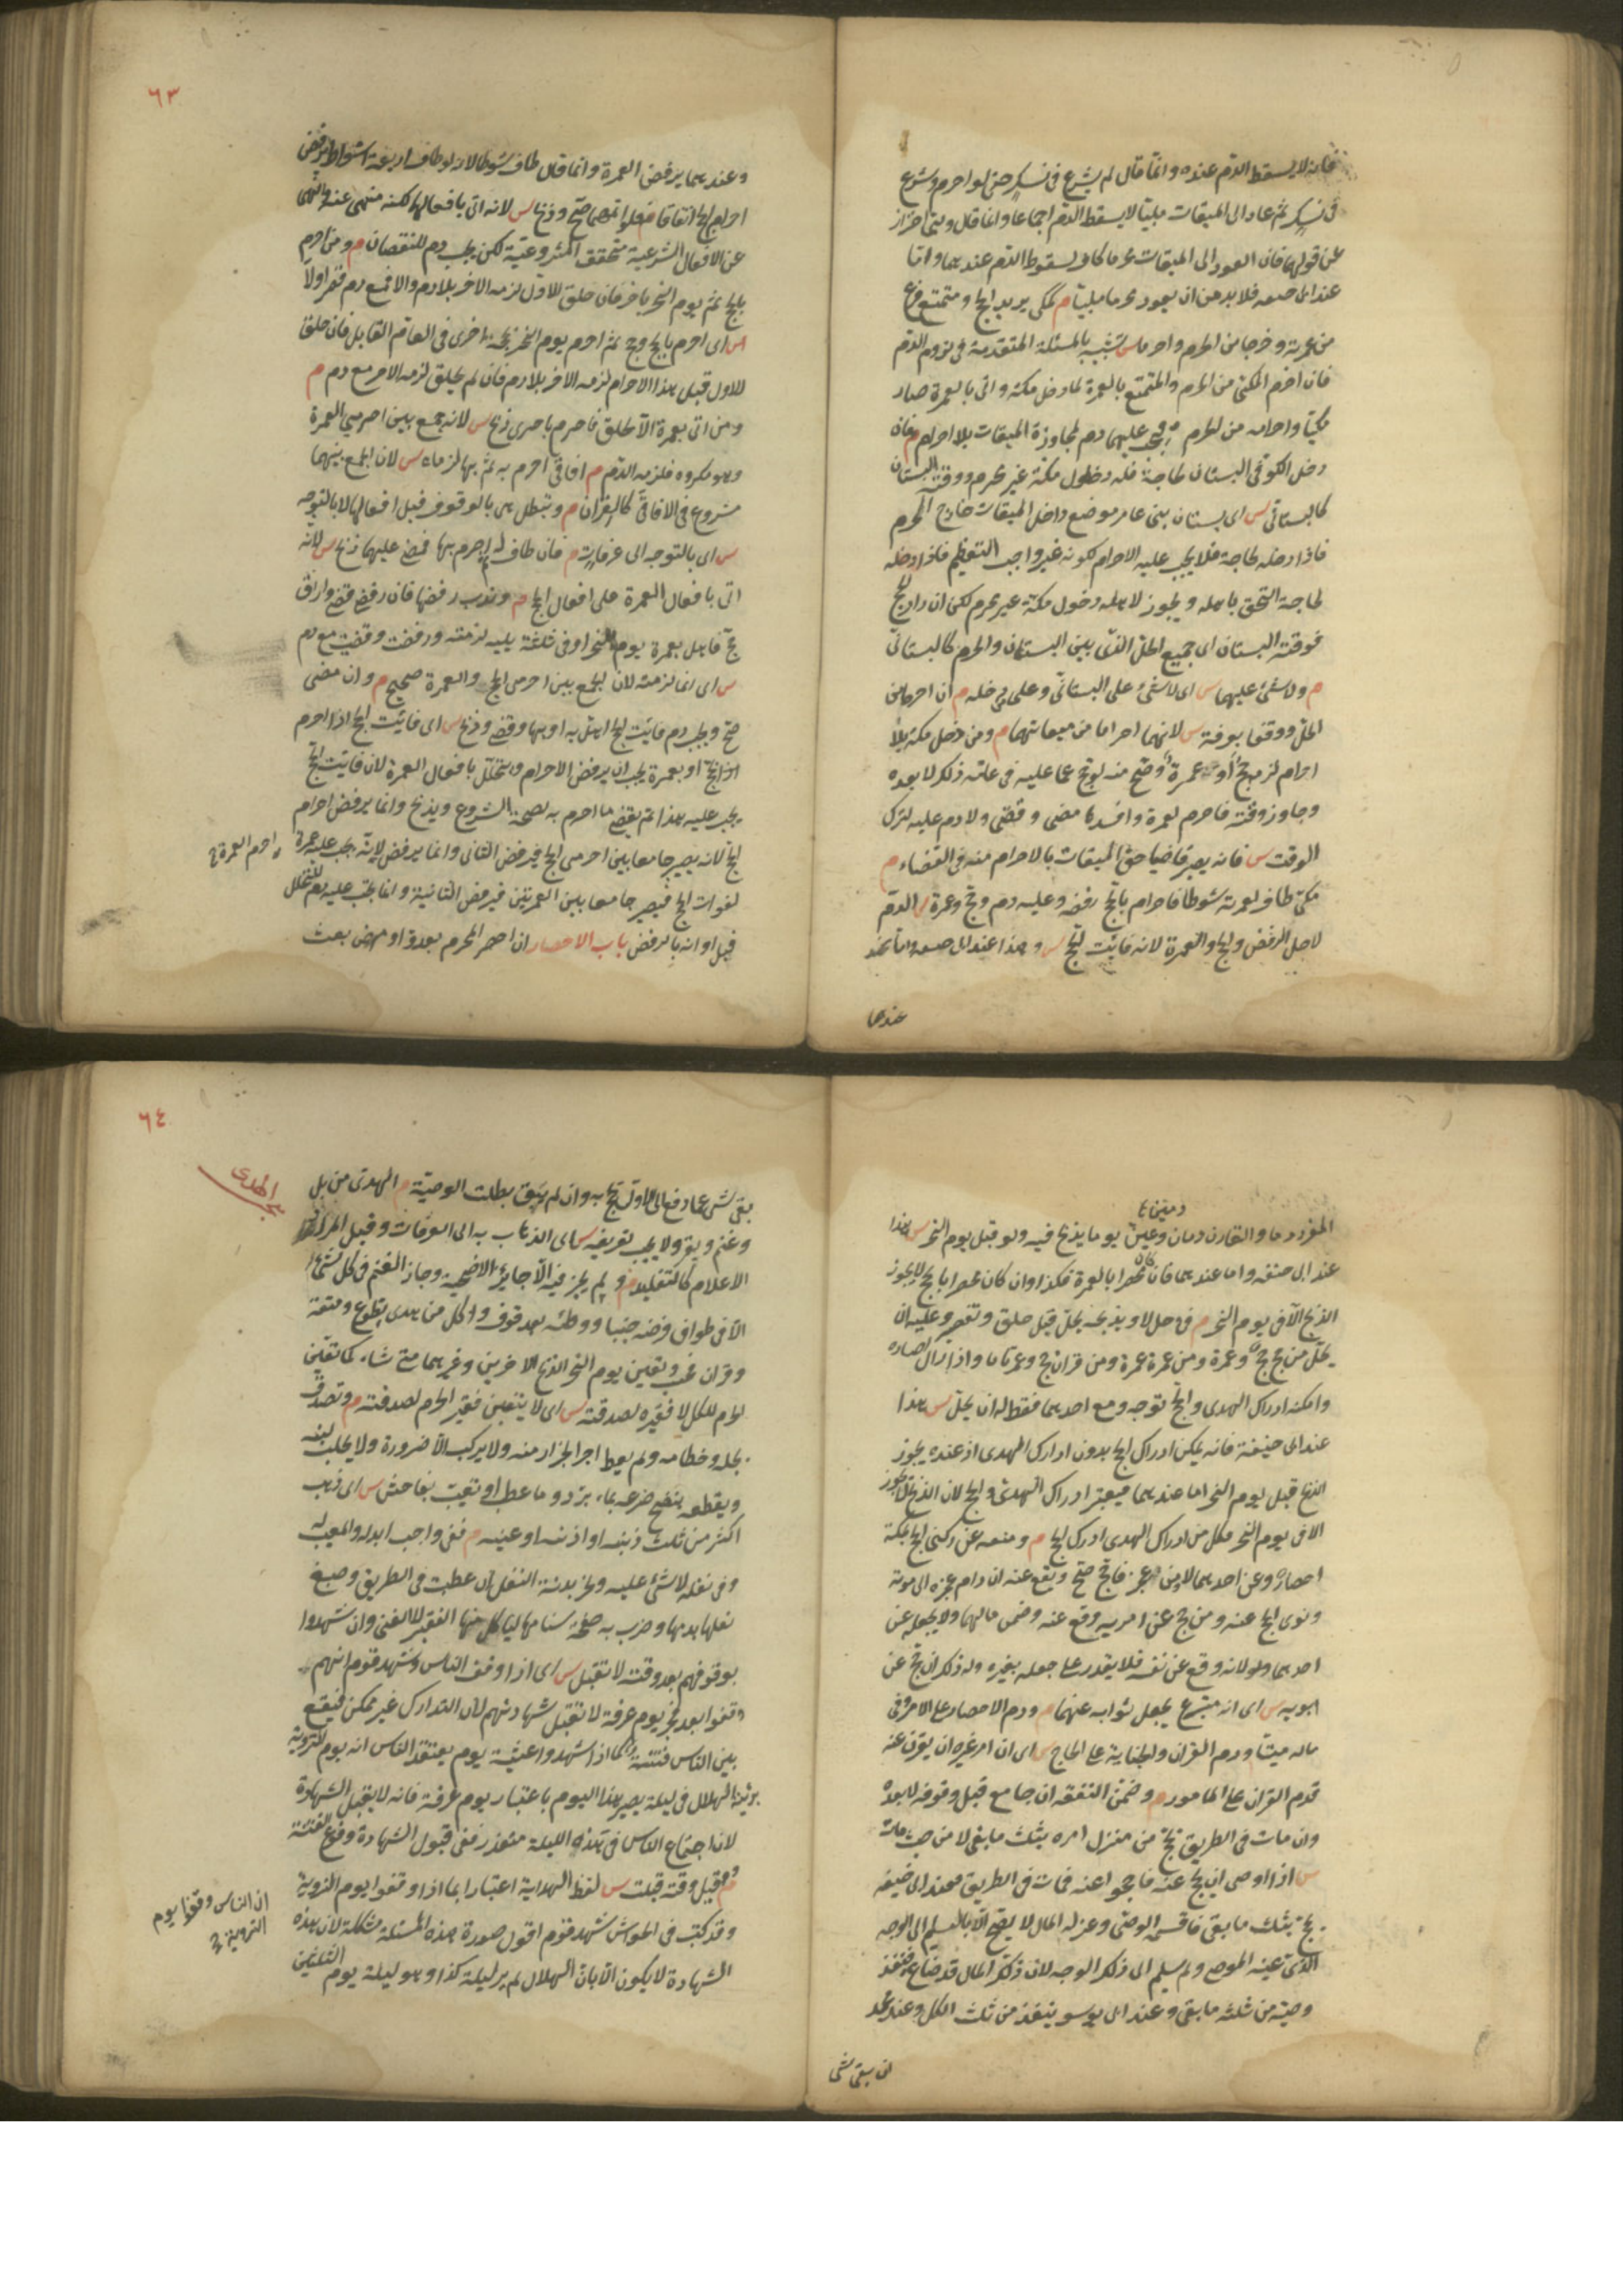 فانه لا يسقط الدم عنده وانما قال لم يشرع في نسك حتى لو احرم وشرع
في نسك ثم عاد الى الميقات ملبيا لا يسقط الدم اجماعا وانما قال ويلبى احتراز
عن قولهما فان العود الى الميقات محرما كاف لسقوط الدم عندهما واما
عند ابى حنيفه فلا بد من ان يعود محرما ملبيا م كمكى يريد الحج ومتمتع فرغ
من عمرته وخرجا من الحرم واحرما س تشبيه بالمسئلة المتقدمة فى لزوم الدم
فان احرام المكى من الحرم والمتمتع بالعمرة لما دخل مكة واتى بالعمرة صار
مكيا واحرامه من الحرم فيجب عليهما دم لمجاوزة الميقات بلا احرام م فان
دخل الكوفى البستان لحاجة فله دخول مكة غير محرم ووقته البستان
كالبستانى س اى بستان بنى عامر موضع داخل الميقات خارج الحرم
فاذا دخله لحاجة فلا يجب عليه الاحرام لكونه غير واجب التعظيم فاذا دخله
لحاجة التحق باهله ويجوز لاهله دخول مكة غير محرم لكن ان اراد الحج
فوقته البستان اى جميع الحل الذى بين البستان والحرم كالبستانى
م ولا شئ عليهما س اى لا شئ على البستانى وعلى من دخله م ان احرما من
الحل ووقفا بعرفة س لانهما احراما من ميقاتهما م ومن دخل مكة بلا
احرام لزمه حج او عمرة وصح منه لو حج عما عليه فى عامه ذلك لا بعده
وجاوز وقته فاحرم بعمرة وافسدها مضى وقضى ولا دم عليه لترك
الوقت س فانه يصير قاضيا حق الميقات بالاحرام منه فى القضاء م
مكى طاف لعمرته شوطا فاحرام بالحج رفضه وعليه دم وحج وعمرة س الدم
لاجل الرفض والحج والعمرة لانه فائت الحج س وهذا عند ابى حنيفه
عندهما
٦٣
وعندهما يرفض العمرة وانما قال طاف شوطا لانه لو طاف اربعة اشواط يرفض
احرام الحج اتفاقا م فلو اتمهما صح وذبح س لانه اتى بافعالهما لكنه منهى عنه والنهى
عن الافعال الشرعية يحقق المشروعية لكن يجب دم للنقصان م ومن احرم
بالحج ثم يوم النحر باخر فان حلق للاول لزمه الاخر بلا دم والا فمع دم قصر اولا
س اى احرم بالحج وحج ثم احرم يوم النحر بحجة اخرى فى العام القابل فان حلق
للاول قبل هذا الاحرام لزمه الاخر بلا دم فان لم يحلق لزمه الاخر مع دم م
ومن اتى بعمرة الا الحلق فاحرم باخرى ذبح س لانه جمع بين احرامى العمرة
وهو مكروه فلزمه الدم م افاقى احرم به ثم بها لزماه س لان الجمع بينهما
مشروع فى الافاقى كالقران م وتبطل هى بالوقوف قبل افعالها لا بالتوجه
س اى بالتوجه الى عرفات م فان طاف له ثم احرم بها فمضى عليهما ذبح س لانه
اتى بافعال العمرة على افعال الحج م وندب رفضها فان رفض قضى واراق
حج فاهل بعمرة يوم النحر او فى ثلثة يليه لزمته ورفضت وقضيت مع دم
س اى انما لزمته لان الجمع بين احرامى الحج والعمرة صحيح م وان مضى
صح ويجب دم فائت الحج اهل به او بها رفض وقضى وذبح س اى فائت الحج اذا احرم
اذا بحج او بعمرة يجب ان يرفض الاحرام ويتحلل بافعال العمرة لان فائت الحج
يجب عليه هذا ثم يقضى ما احرم به لصحة الشروع ويذبح وانما يرفض احرام
الحج لانه يصير جامعا بين احرامى الحج فيرفض الثانى وانما يرفض لانه يجب عليه عمرة
احرام العمرة صح
لفوات الحج فيصير جامعا بين العمرتين فيرفض الثانية وانما يجب عليه دم للتحلل
قبل اوانه بالرفض باب الاحصار ان احصر المحرم بعدو او مرض بعث
دمين صح
المفرد دما والقارن دمان وعين يوما يذبح فيه ولو قبل يوم النحر س هذا
عند ابى حنيفه واما عندهما فان كان محصرا بالعمرة فكذا وان كان محصرا بالحج لا يجوز
الذبح الا فى يوم النحر م فى حل لا وبذبحه يحل قبل حلق وتقصير وعليه ان
يحل من حج حج وعمرة ومن عمرة عمرة ومن قران حج وعمرتان واذا زال احصاره
وامكنه ادراك الهدى والحج توجه ومع احدهما فقط له ان يحل س هذا
عند ابى حنيفة فانه يمكن ادراك الحج بدون ادراك الهدى اذ عنده يجوز
الذبح قبل يوم النحر اما عندهما فيعتبر ادراك الهدى والحج لان الذبح لا يجوز
الا فى يوم النحر فكل من ادراك الهدى ادرك الحج م ومنعه عن ركنى الحج بمكة
احصار وعن احدهما لا ومن عجز فاحج صح ويقع عنه ان دام عجزه الى موته
ونوى الحج عنه ومن حج عن امريه وقع عنه وضمن مالهما ولا يجعله عن
احدهما ولو لانه وقع عن نفسه فلا يقدر على جعله بغيره وله ذلك ان حج عن
ابويه س اى انه متبرع يجعل ثوابه عنهما م ودم الاحصار على الامر وفى
ماله ميتا ودم القران والجناية على الحاج س اى ان امر غيره ان يقرن عنه
فدم القران على المامور م وضمن النفقه ان جامع قبل وقوفه لا بعده
وان مات فى الطريق يحج من منزل امره بثلث ما بقى لا من حيث مات
س اذا اوصى ان يحج عنه فاحجوا عنه فمات فى الطريق فعند ابى حنيفه
يحج بثلث ما بقى فاقسمه الوصى وعزله المال لا يصح الا بالتسليم الى الوجه
الذى عينه الموصى ولم يسلم الى ذلك الوجه لان ذلك المال قد ضاع فينفذ
وصيته من ثلثه ما بقى وعند ابى يوسف ينفذ من ثلث الكل وعند محمد
ان بقى شى
٦٤
الهدى
بقى شى مما دفع الى الاول يحج به وان لم يبق بطلت الوصية م الهدى من ابل
وغنم وبقر ولا يجب تعريفه س اى الذهاب به الى العرفات وقيل المراد
الاعلام كالتقليد م ولم يجز فيه الا جائز الاضحية وجاز الغنم فى كل شئ
الا فى طواف فرضه جنبا ووطئه بعد وقوف واكل من هدى تطوع ومتعة
وقران فحسب وتعين يوم النحر لذبح الاخرين وغيرهما متى شاء كما تعين
الحرم للكل لا فقيره لصدقته س اى لا يتعين فقير الحرم لصدقته م وتصدق
بجله وخطامه ولم يعط اجر الجزار منه ولا يركب الا ضرورة ولا يحلب لبنه
ويقطعه بنضح ضرعه بماء برد وما عطب او تعيب بفاحش س اى ذهب
اكثر من ثلث ذنبه او اذنه او عينه م ففى واجب ابدله والمعيب له
وفى نفله لا شئ عليه ونحر بدنة النفل ان عطبت فى الطريق وصبغ
نعلها بدمها وضرب به صفحة سنامها لياكل منها الفقير لا الغنى وان شهدوا
بوقوفهم بعد وقته لا تقبل س اى اذا وقف الناس وشهد قوم انهم
وقفوا بعد يوم عرفة لا تقبل شهادتهم لان التدارك غير ممكن فيقع
بين الناس فتنة كما اذا شهدوا عشية يوم يعتقد الناس انه يوم التروية
برؤية الهلال فى ليلة يصير هذا اليوم باعتبار يوم عرفة فانه لا يقبل الشهادة
لان اجتماع الناس فى هذه الليلة متعذر ففى قبول الشهادة وقوع الفتنة
م وقبل وقته قبلت س لفظ الهداية اعتبارا بما اذا وقفوا يوم التروية
ان الناس وقفوا يوم
التروية صح
وقد كتب فى الحواشى شهد قوم اقول صورة هذه المسئلة مشكلة لان هذه
الشهادة لا يكون الا بان الهلال لم ير ليلة كذا وهو ليلة يوم الثلثين